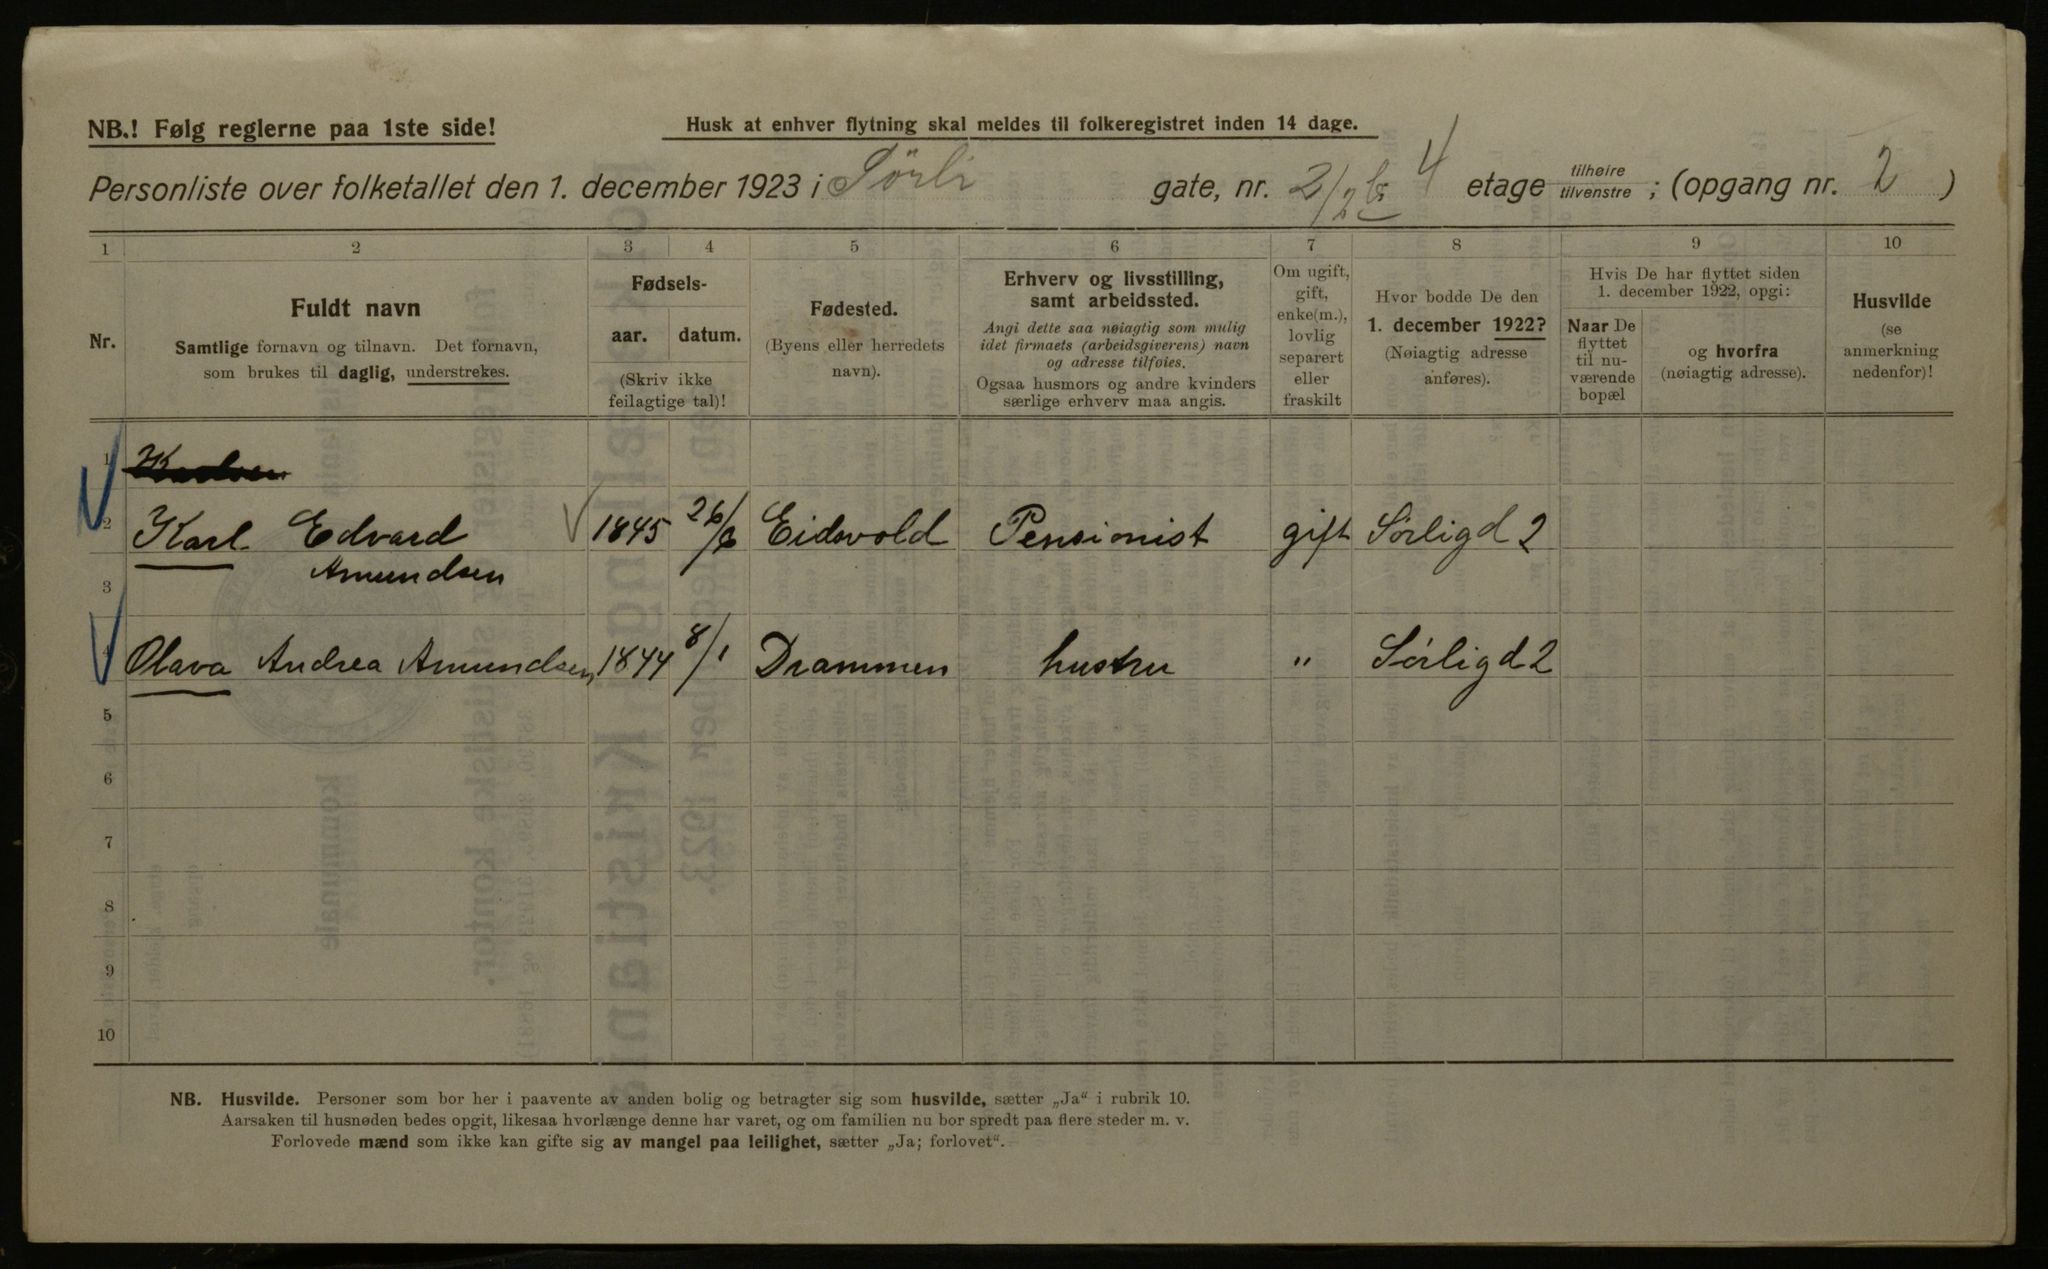 NB.! Følg reglerne paa 1ste side!
Husk at enhver flytning skal meldes til folkeregistret inden 14 dage.
Personliste over folketallet den 1. december 1923 i Sörli gate, nr. 2/2b 4 etage tilhøire/tilvenstre ; (opgang nr. 2 )
1 2 3 4 5 6 7 8 9 10
Nr.
Fuldt navn
Samtlige fornavn og tilnavn. Det fornavn,
som brukes til daglig, understrekes.
Fødsels-
aar. datum.
(Skriv ikke
feilagtige tal)!
Fødested.
(Byens eller herredets
navn).
Erhverv og livsstilling,
samt arbeidssted.
Angi dette saa nøiagtig som mulig
idet firmaets (arbeidsgiverens) navn
og adresse tilføies.
Ogsaa husmors og andre kvinders
særlige erhverv maa angis.
Om ugift,
gift,
enke(m.),
lovlig
separert
eller
fraskilt
Hvor bodde De den
1. december 1922?
(Nøiagtig adresse
anføres).
Hvis De har flyttet siden
1. december 1922, opgi:
Naar De
flyttet
til nu-
værende
bopæl
og hvorfra
(nøiagtig adresse).
Husvilde
(se
anmerkning
nedenfor)!
1
2 Karl Edvard 1845 26/6 Eidsvold Pensionist gift Sörligd 2
3 Amundsen
4 Olava Andrea Amundsen 1844 8/1 Drammen hustru " Sörligd 2
5
6
7
8
9
10
NB. Husvilde. Personer som bor her i paavente av anden bolig og betragter sig som husvilde, sætter „Ja“ i rubrik 10.
Aarsaken til husnøden bedes opgit, likesaa hvorlænge denne har varet, og om familien nu bor spredt paa flere steder m. v.
Forlovede mænd som ikke kan gifte sig av mangel paa leilighet, sætter „Ja; forlovet“.